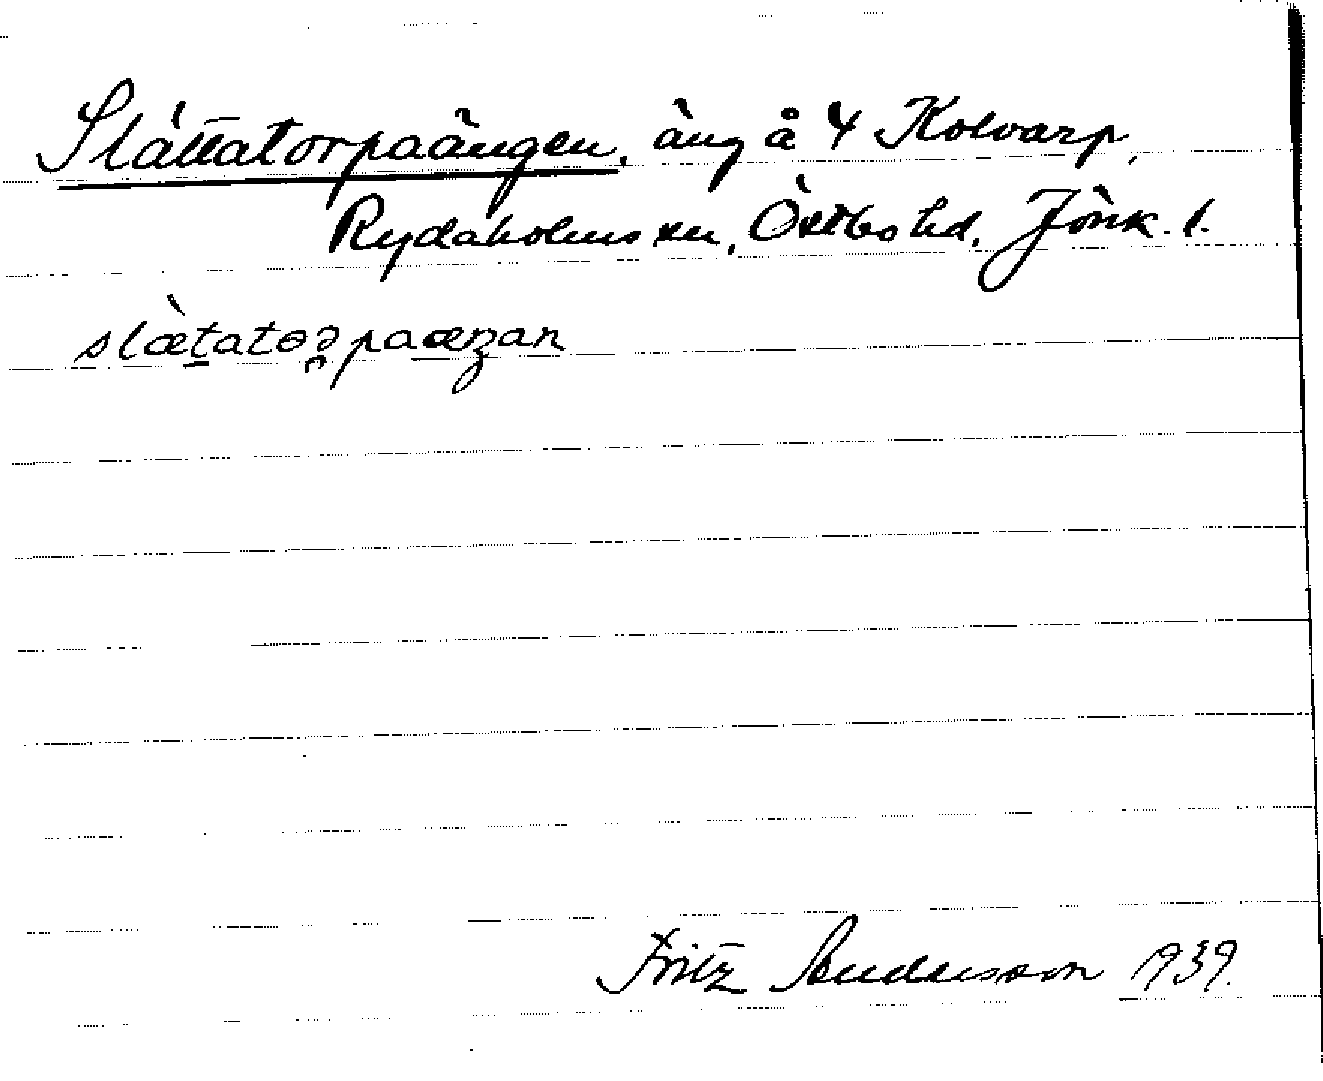 Slättatorpaängen, äng å 4 Kolvarp,
Rydaholms sn, Östbo hd, Jönk. l.
slæ̀tatoɂpaæŋan
Fritz Andersson 1939.